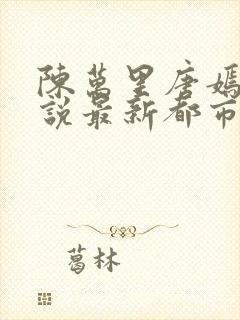 陳萬里唐嫣
說最新都市
葛林